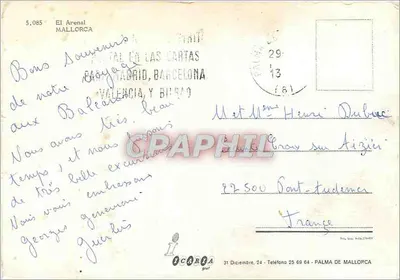 5,085 El Arenal
MALLORCA
POSTAL EN LAS CARTAS
PARA MADRID, BARCELONA
VALENCIA, Y BILBAO
PALMA
29
13
Bons Souvenirs
de notre voyage
aux Baléares
Nous avons très beau
temps, et nous faisons
de très belle excursion
Nous vous embrassons
Georges Geneviève
M et Mme Henri Dubuc
Croix sur Aizier
27500 Pont-Audemer
France
CPAPHIL
OCORGA
31 Diciembre, 24 - Teléfono 25 69 64 - PALMA DE MALLORCA